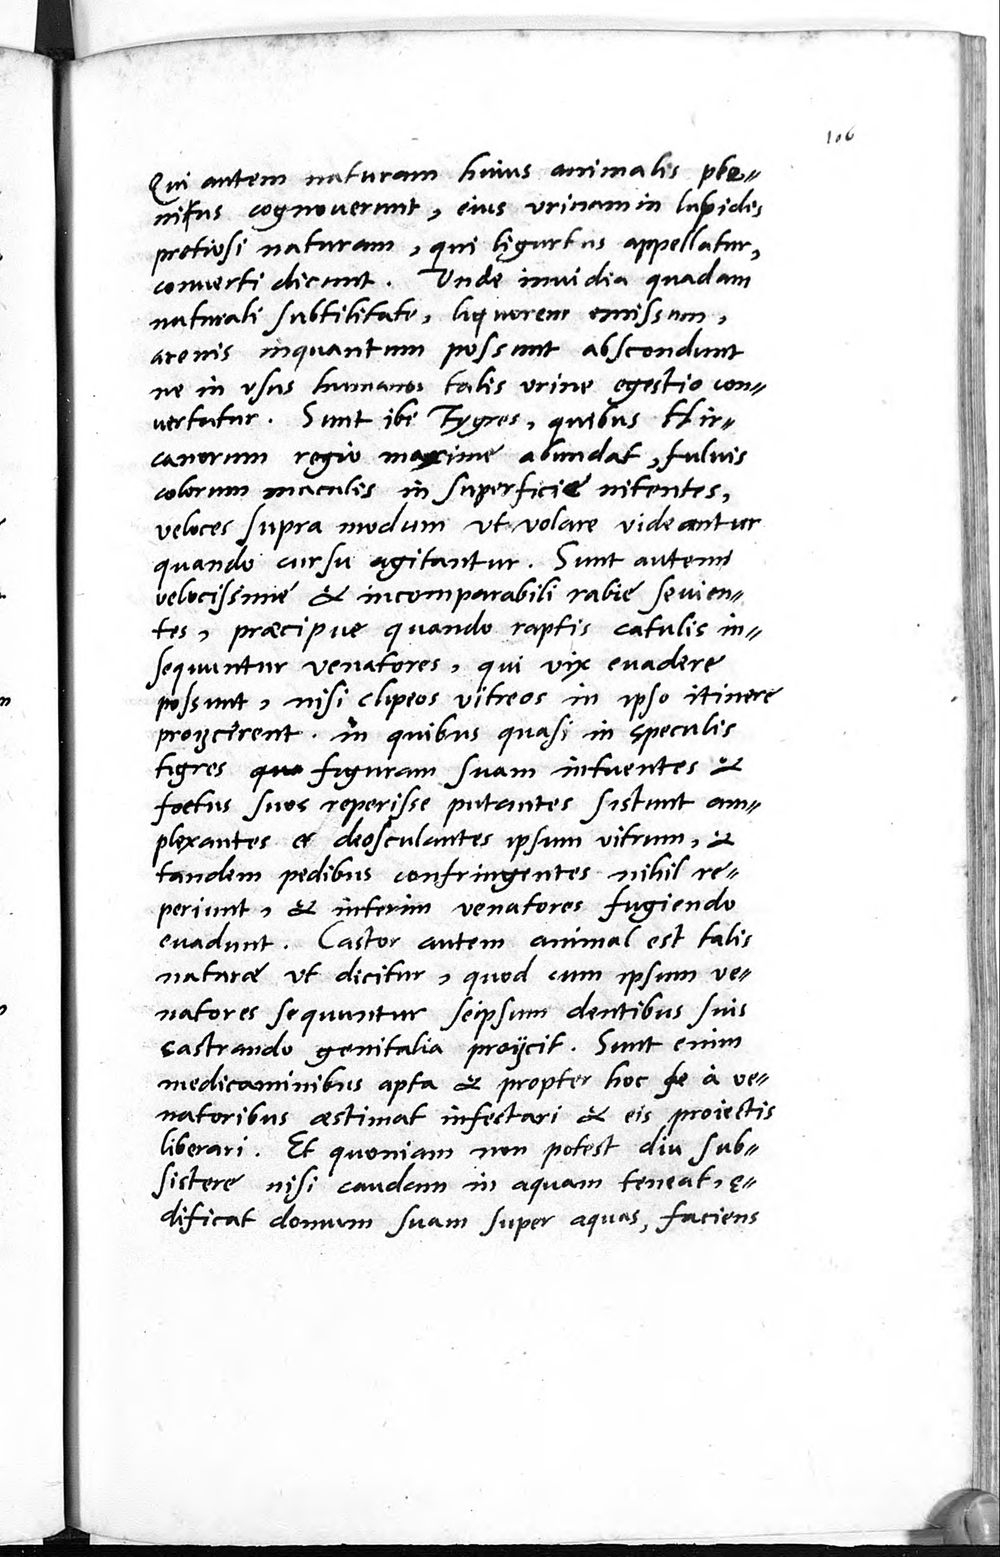 106
Qui autem naturam huius animalis ple„
nitus cognouerunt, eius vrinam in lapidis
pretiosi naturam, qui ligurtus appellatur,
conuerti dicunt. Unde inuidia quadam
naturali subtilitate, liquorem emissum,
arenis inquantum possunt abscondunt
ne in vsus humanos talis vrine egestio con„
uertatur. Sunt ibi Tygres, quibus Hir„
canorum regio maxime abundat, fuluis
colorum maculis in superficie nitentes,
veloces supra modum vt volare videantur
quando cursu agitantur. Sunt autem
velocissime & incomparabili rabie seuien„
tes, præcipue quando raptis catulis in„
sequuntur venatores, qui vix euadere
possunt, nisi clipeos vitreos in ipso itinere
proijcerent. in quibus quasi in speculis
tigres figuram suam intuentes &
foetus suos reperisse putantes sistunt am„
plexantes et deosculantes ipsum vitrum, &
tandem pedibus confringentes nihil re„
periunt, & interim venatores fugiendo
euadunt. Castor autem animal est talis
naturæ vt dicitur, quod cum ipsum ve„
natores sequuntur seipsum dentibus suis
castrando genitalia proijcit. Sunt enim
medicaminibus apta & propter hoc se à ve„
natoribus æstimat infectari & eis proiectis
liberari. Et quoniam non potest diu sub„
sistere nisi caudam in aquam teneat, ę„
dificat domum suam super aquas, faciens